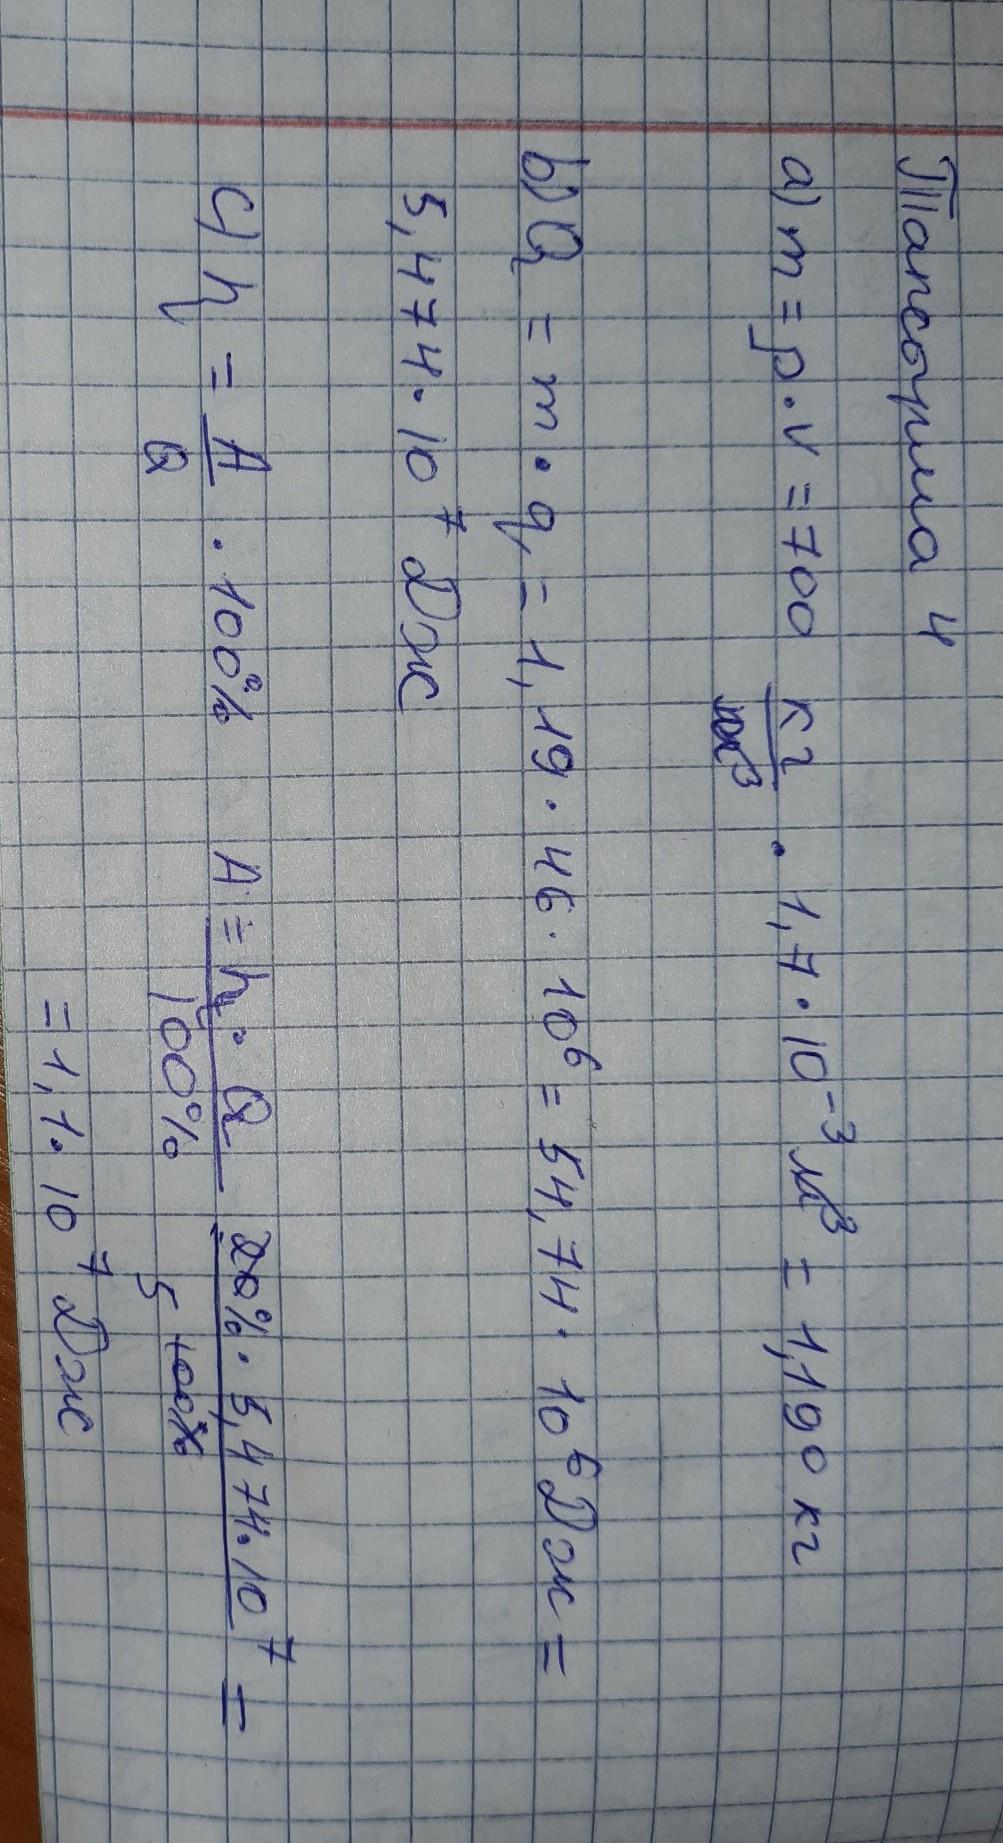 Тапсырма 4
a) m = ρ · v = 700 кг/м³ · 1,7 · 10⁻³ м³ = 1,190 кг
b) Q = m · q = 1,19 · 46 · 10⁶ = 54,74 · 10⁶ Дж =
5,474 · 10⁷ Дж
c) η = A/Q · 100% A = η · Q/100% 20% · 5,474 · 10⁷/100% =
5
= 1,1 · 10⁷ Дж